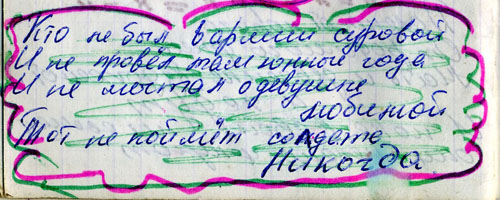 Кто не был в армии суровой
И не провёл там юнные года
И не мечтал о девушке
любимой
Тот не поймёт солдата
Никогда